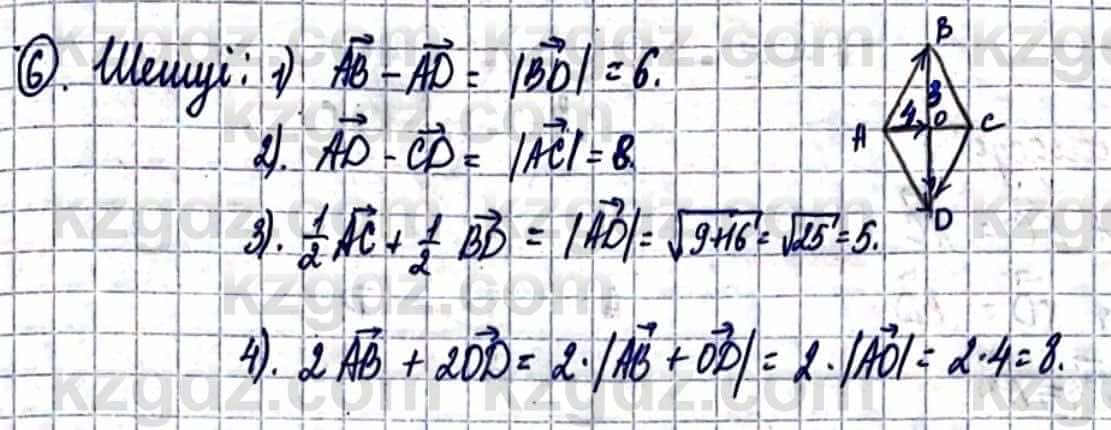 6. Шешуі: 1) AB⃗ − AD⃗ = |BD⃗| = 6.
2). AD⃗ − CD⃗ = |AC⃗| = 8.
3). 1/2 AC⃗ + 1/2 BD⃗ = |AD⃗| = √9+16 = √25 = 5.
4). 2AB⃗ + 2OD⃗ = 2·|AB⃗ + OD⃗| = 2·|AO⃗| = 2·4 = 8.
B
3
A 4 O C
D
kzgdz.com